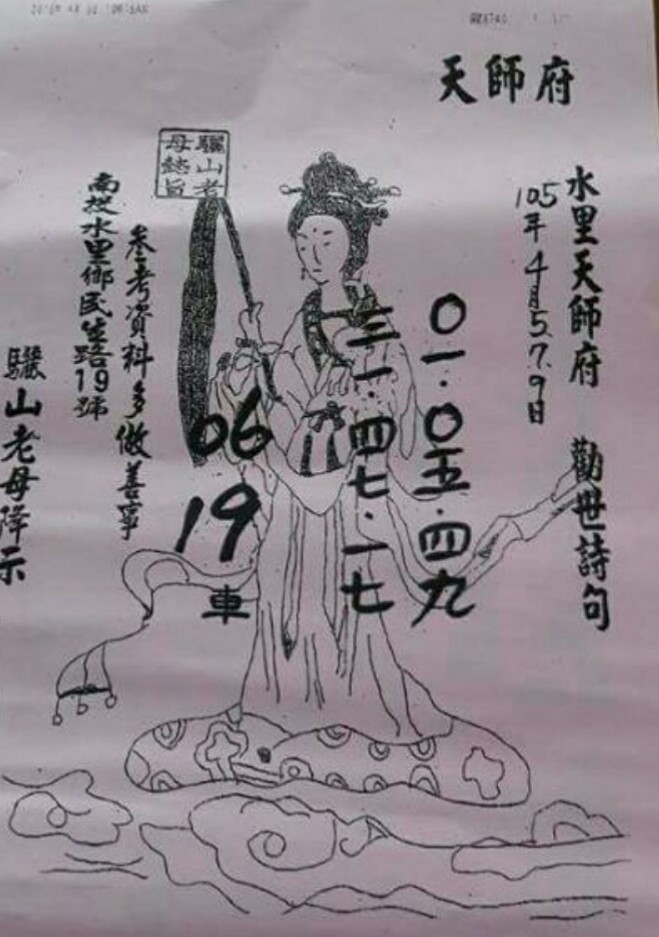 天師府
水里天師府 勸世詩句
105年4月5.7.9日
〇一.〇五.四九
三一.四七.一七
06
19
車
驪山老母懿旨
參考資料多做善事
南投水里鄉民生路19號
驪山老母降示